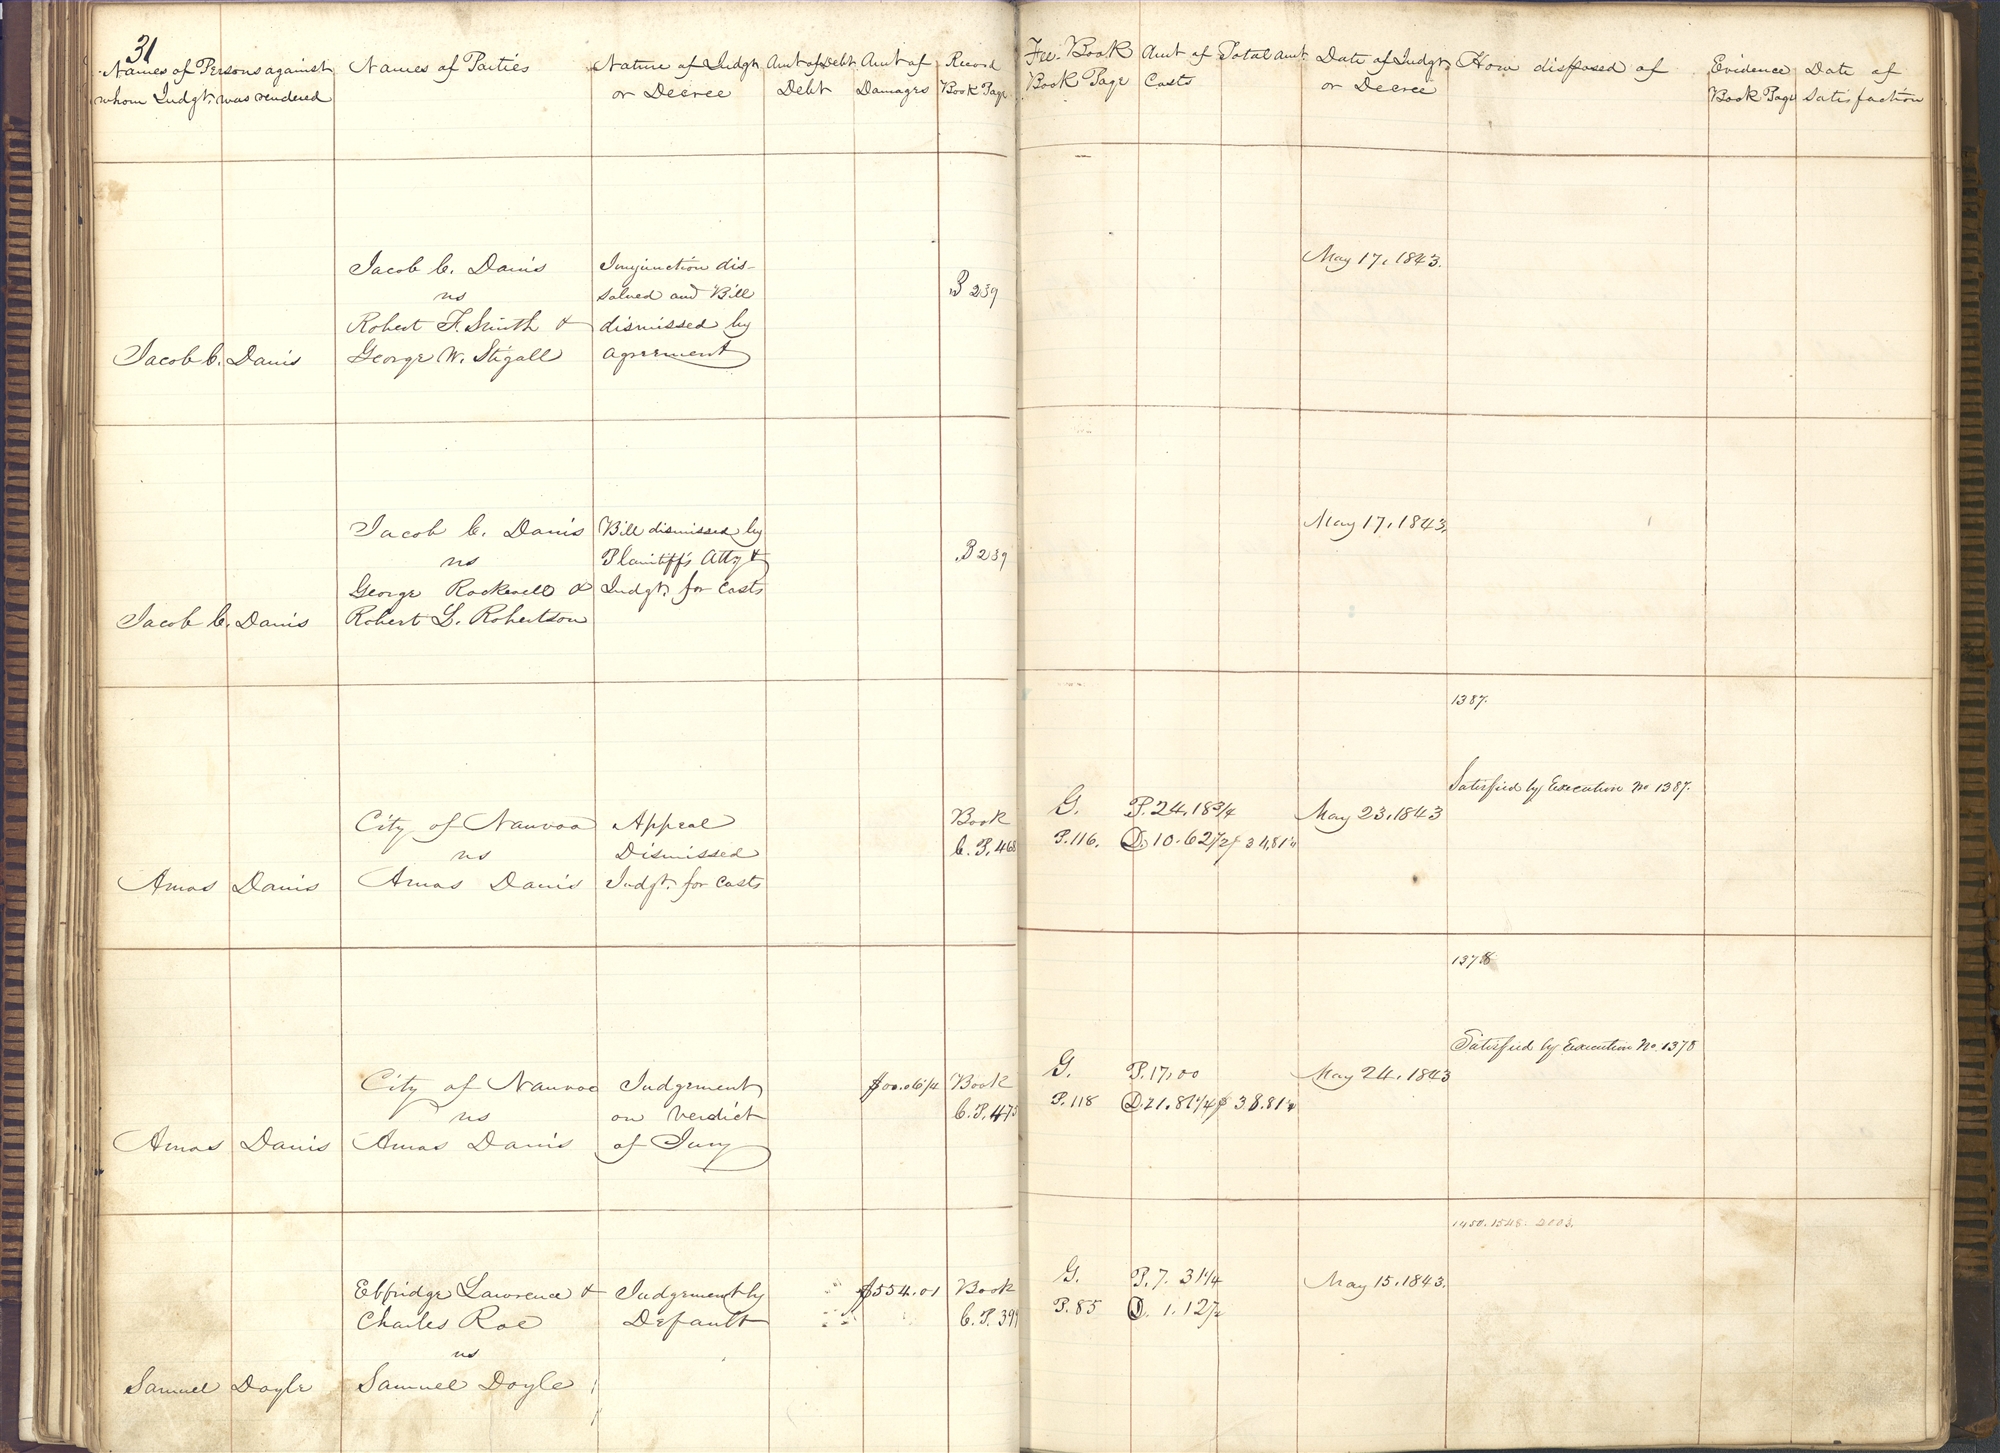 31
Names of Persons against
whom Judgt. was rendered
Names of Parties
Nature of Judgt.
or Decree
Amt of Debt
Debt
Amt of
Damages
Record
Book Page
Fee. Book
Book Page
Amt of
Costs
Total Amt.
Date of Judgt.
or Decree
How disposed of
Evidence
Book Page
Date of
Satisfaction
Jacob C. Davis
Jacob C. Davis
vs
Robert F. Smith &
George W. Stigall
Injunction dis-
solved and Bill
dismissed by
agreement
B 239
May 17, 1843.
Jacob C. Davis
Jacob C. Davis
vs
George Rockwell &
Robert L. Robertson
Bill dismissed by
Plaintiff's Atty &
Judgt. for Costs
B 239
May 17, 1843.
Amos Davis
City of Nauvoo
vs
Amos Davis
Appeal
Dismissed
Judgt. for Costs
Book
C. P. 468
G.
P. 116.
P. 24.18 3/4
D. 10.62 1/2
$ 34.81 1/4
May 23, 1843
1387.
Satisfied by Execution No 1387.
Amos Davis
City of Nauvoo
vs
Amos Davis
Judgement
on Verdict
of Jury
$00.06 1/4
Book
C. P. 475
G.
P. 118
P. 17.00
D. 21.81 1/4
$ 38.81 1/4
May 24, 1843
1378
Satisfied by Execution No. 1378
Samuel Doyle
Elfridge Lawrence &
Charles Roe
vs
Samuel Doyle
Judgement by
Default
$554.01
Book
C. P. 399
G.
P. 85
P. 7. 31 1/4
D. 1. 12 1/2
May 15, 1843.
1450. 1548. 2003.